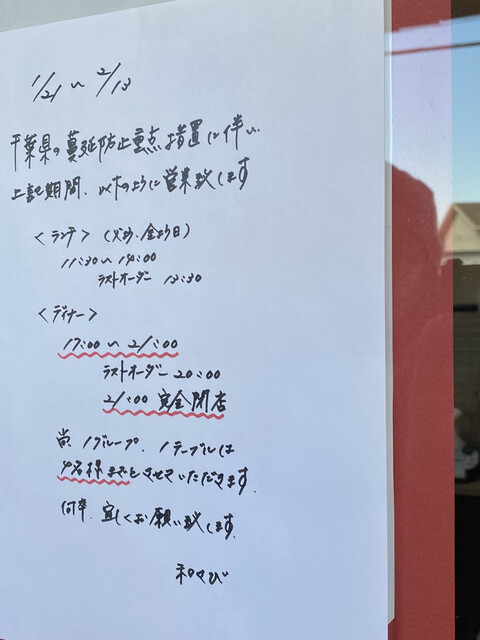 1/21 〜 2/13
千葉県の蔓延防止重点措置に伴い
上記期間、以下のように営業致します
＜ランチ＞ (火よう、金よう日)
11:30〜14:00
ラストオーダー 13:30
＜ディナー＞
17:00〜21:00
ラストオーダー 20:00
21:00 完全閉店
尚、1グループ、1テーブルは
4名様までとさせていただきます。
何卒、宜しくお願い致します。
和